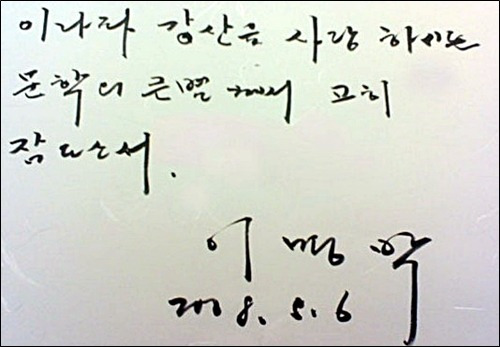 이나라 강산을 사랑 하시는
문학의 큰별 께서 고히
잠드소서.
이 명 박
2008. 5. 6